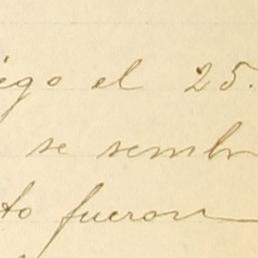 ego el 25.
se sembr
to fueron